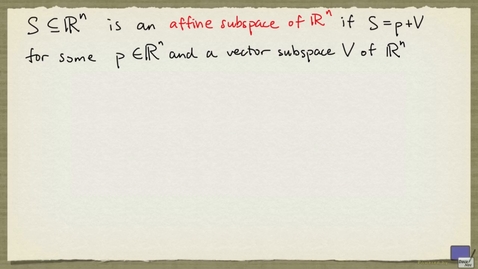 S ⊆ ℝⁿ is an affine subspace of ℝⁿ if S = p + V
for some p ∈ ℝⁿ and a vector subspace V of ℝⁿ